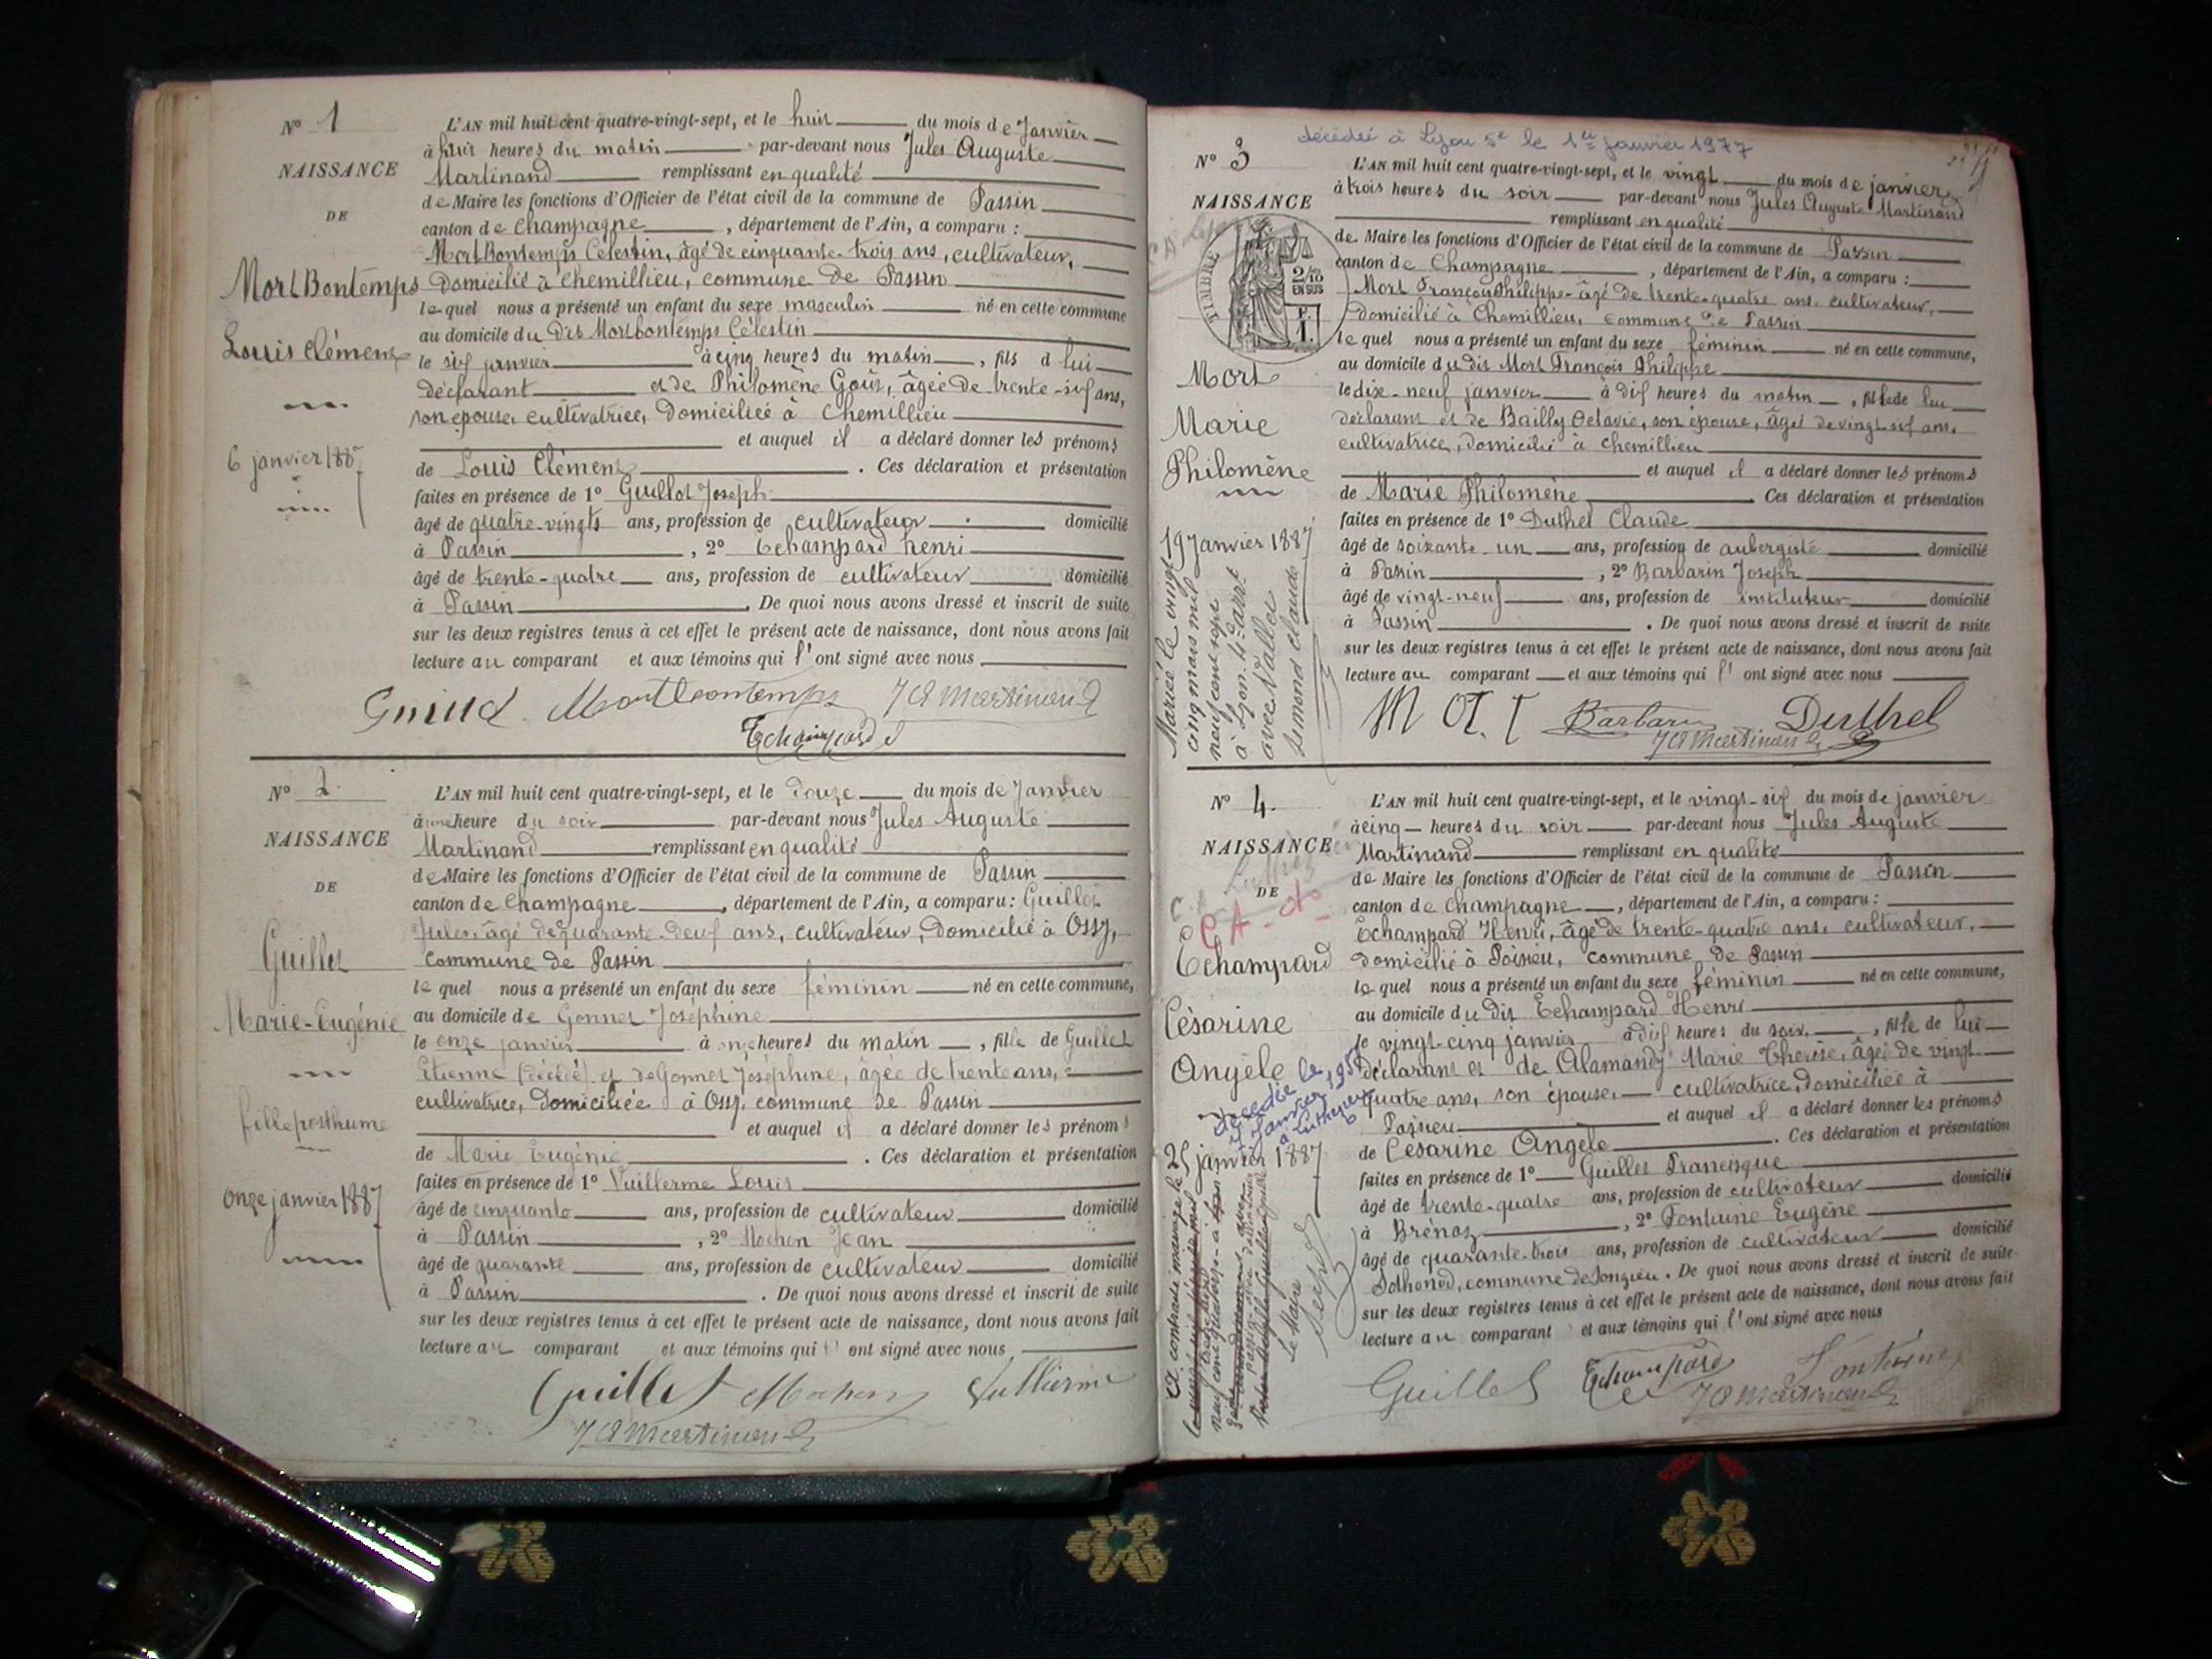 N° 1
NAISSANCE
DE
Mort Bontemps
Louis Clément
6 janvier 1887
L'AN mil huit cent quatre-vingt-sept, et le huit du mois de Janvier
à huit heures du matin par-devant nous Jules Auguste
Martinand remplissant en qualité
de Maire les fonctions d'Officier de l'état civil de la commune de Passin
canton de Champagne, département de l'Ain, a comparu :
Mort Bontemps Célestin, âgé de cinquante-trois ans, cultivateur,
domicilié à Chemillieu, commune de Passin
lequel nous a présenté un enfant du sexe masculin né en cette commune
au domicile du dit Mortbontemps Célestin
le six janvier à cinq heures du matin, fils d lui
déclarant et de Philomène Goût, âgée de trente-six ans,
son épouse, cultivatrice, domiciliée à Chemillieu
et auquel il a déclaré donner les prénoms
de Louis Clément. Ces déclaration et présentation
faites en présence de 1° Guillot Joseph
âgé de quatre-vingts ans, profession de cultivateur domicilié
à Passin, 2° Echampard henri
âgé de trente-quatre ans, profession de cultivateur domicilié
à Passin. De quoi nous avons dressé et inscrit de suite
sur les deux registres tenus à cet effet le présent acte de naissance, dont nous avons fait
lecture au comparant et aux témoins qui l'ont signé avec nous
Mortbontemps JA Martinand
Echampard
N° 2.
NAISSANCE
DE
Guillet
Marie-Eugénie
fille posthume
onze janvier 1887
L'AN mil huit cent quatre-vingt-sept, et le douze du mois de Janvier
à une heure du soir par-devant nous Jules Auguste
Martinand remplissant en qualité
de Maire les fonctions d'Officier de l'état civil de la commune de Passin
canton de Champagne, département de l'Ain, a comparu : Guillet
Jules, âgé de quarante-neuf ans, cultivateur, domicilié à Ossy,
commune de Passin
lequel nous a présenté un enfant du sexe féminin né en cette commune,
au domicile de Gonnet Joséphine
le onze janvier à onze heures du matin, fille de Guillet
Etienne (décédé) et de Gonnet Joséphine, âgée de trente ans,
cultivatrice, domiciliée à Ossy, commune de Passin
et auquel il a déclaré donner les prénoms
de Marie Eugénie. Ces déclaration et présentation
faites en présence de 1° Vuillerme Louis
âgé de cinquante ans, profession de cultivateur domicilié
à Passin, 2° Mochon Jean
âgé de quarante ans, profession de cultivateur domicilié
à Passin. De quoi nous avons dressé et inscrit de suite
sur les deux registres tenus à cet effet le présent acte de naissance, dont nous avons fait
lecture au comparant et aux témoins qui l'ont signé avec nous
Guillet Mochon Vuillerme
JA Martinand
décédée à Lyon 5e le 1er janvier 1977
N° 3
NAISSANCE
TIMBRE
2/10
EN SUS
Mort
Marie
Philomène
19 Janvier 1887
Mariée le vingt
cinq mars mil
neuf cent
à Lyon. 4e arrt
avec Vallet
Simond Claude
L'AN mil huit cent quatre-vingt-sept, et le vingt du mois de janvier
à trois heures du soir par-devant nous Jules Auguste Martinand
remplissant en qualité
de Maire les fonctions d'Officier de l'état civil de la commune de Passin
canton de Champagne, département de l'Ain, a comparu :
Mort François Philippe âgé de trente-quatre ans cultivateur,
domicilié à Chemillieu, commune de Passin
lequel nous a présenté un enfant du sexe féminin né en cette commune,
au domicile du dit Mort François Philippe
le dix-neuf janvier à dix heures du matin, fille de lui
déclarant et de Bailly Octavie, son épouse, âgée de vingt-six ans,
cultivatrice, domicilié à Chemillieu
et auquel il a déclaré donner les prénoms
de Marie Philomène. Ces déclaration et présentation
faites en présence de 1° Duthel Claude
âgé de soixante-un ans, profession de aubergiste domicilié
à Passin, 2° Barbarin Joseph
âgé de vingt-neuf ans, profession de instituteur domicilié
à Passin. De quoi nous avons dressé et inscrit de suite
sur les deux registres tenus à cet effet le présent acte de naissance, dont nous avons fait
lecture au comparant et aux témoins qui l'ont signé avec nous
MORT Barbarin Duthel
JA Martinand
N° 4.
NAISSANCE
DE
Echampard
Césarine
Angèle
décédée le
janvier
25 janvier 1887
A contracté mariage le
Le Maire
L'AN mil huit cent quatre-vingt-sept, et le vingt-six du mois de janvier
à cinq heures du soir par-devant nous Jules Auguste
Martinand remplissant en qualité
de Maire les fonctions d'Officier de l'état civil de la commune de Passin
canton de Champagne, département de l'Ain, a comparu :
Echampard Henri, âgé de trente-quatre ans, cultivateur,
domicilié à Poisieu, commune de Passin
lequel nous a présenté un enfant du sexe féminin né en cette commune,
au domicile du dit Echampard Henri
le vingt-cinq janvier à dix heures du soir, fille de lui
déclarant et de Alamandy Marie Thérèse, âgée de vingt-
quatre ans, son épouse, cultivatrice, domiciliée à
Poisieu et auquel il a déclaré donner les prénoms
de Césarine Angèle. Ces déclaration et présentation
faites en présence de 1° Guillet Francisque
âgé de trente-quatre ans, profession de cultivateur domicilié
à Brénaz, 2° Fontaine Eugène
âgé de quarante-trois ans, profession de cultivateur domicilié
Sothonod, commune de Songieu. De quoi nous avons dressé et inscrit de suite
sur les deux registres tenus à cet effet le présent acte de naissance, dont nous avons fait
lecture au comparant et aux témoins qui l'ont signé avec nous
Guillet Echampard Fontaine
JA Martinand